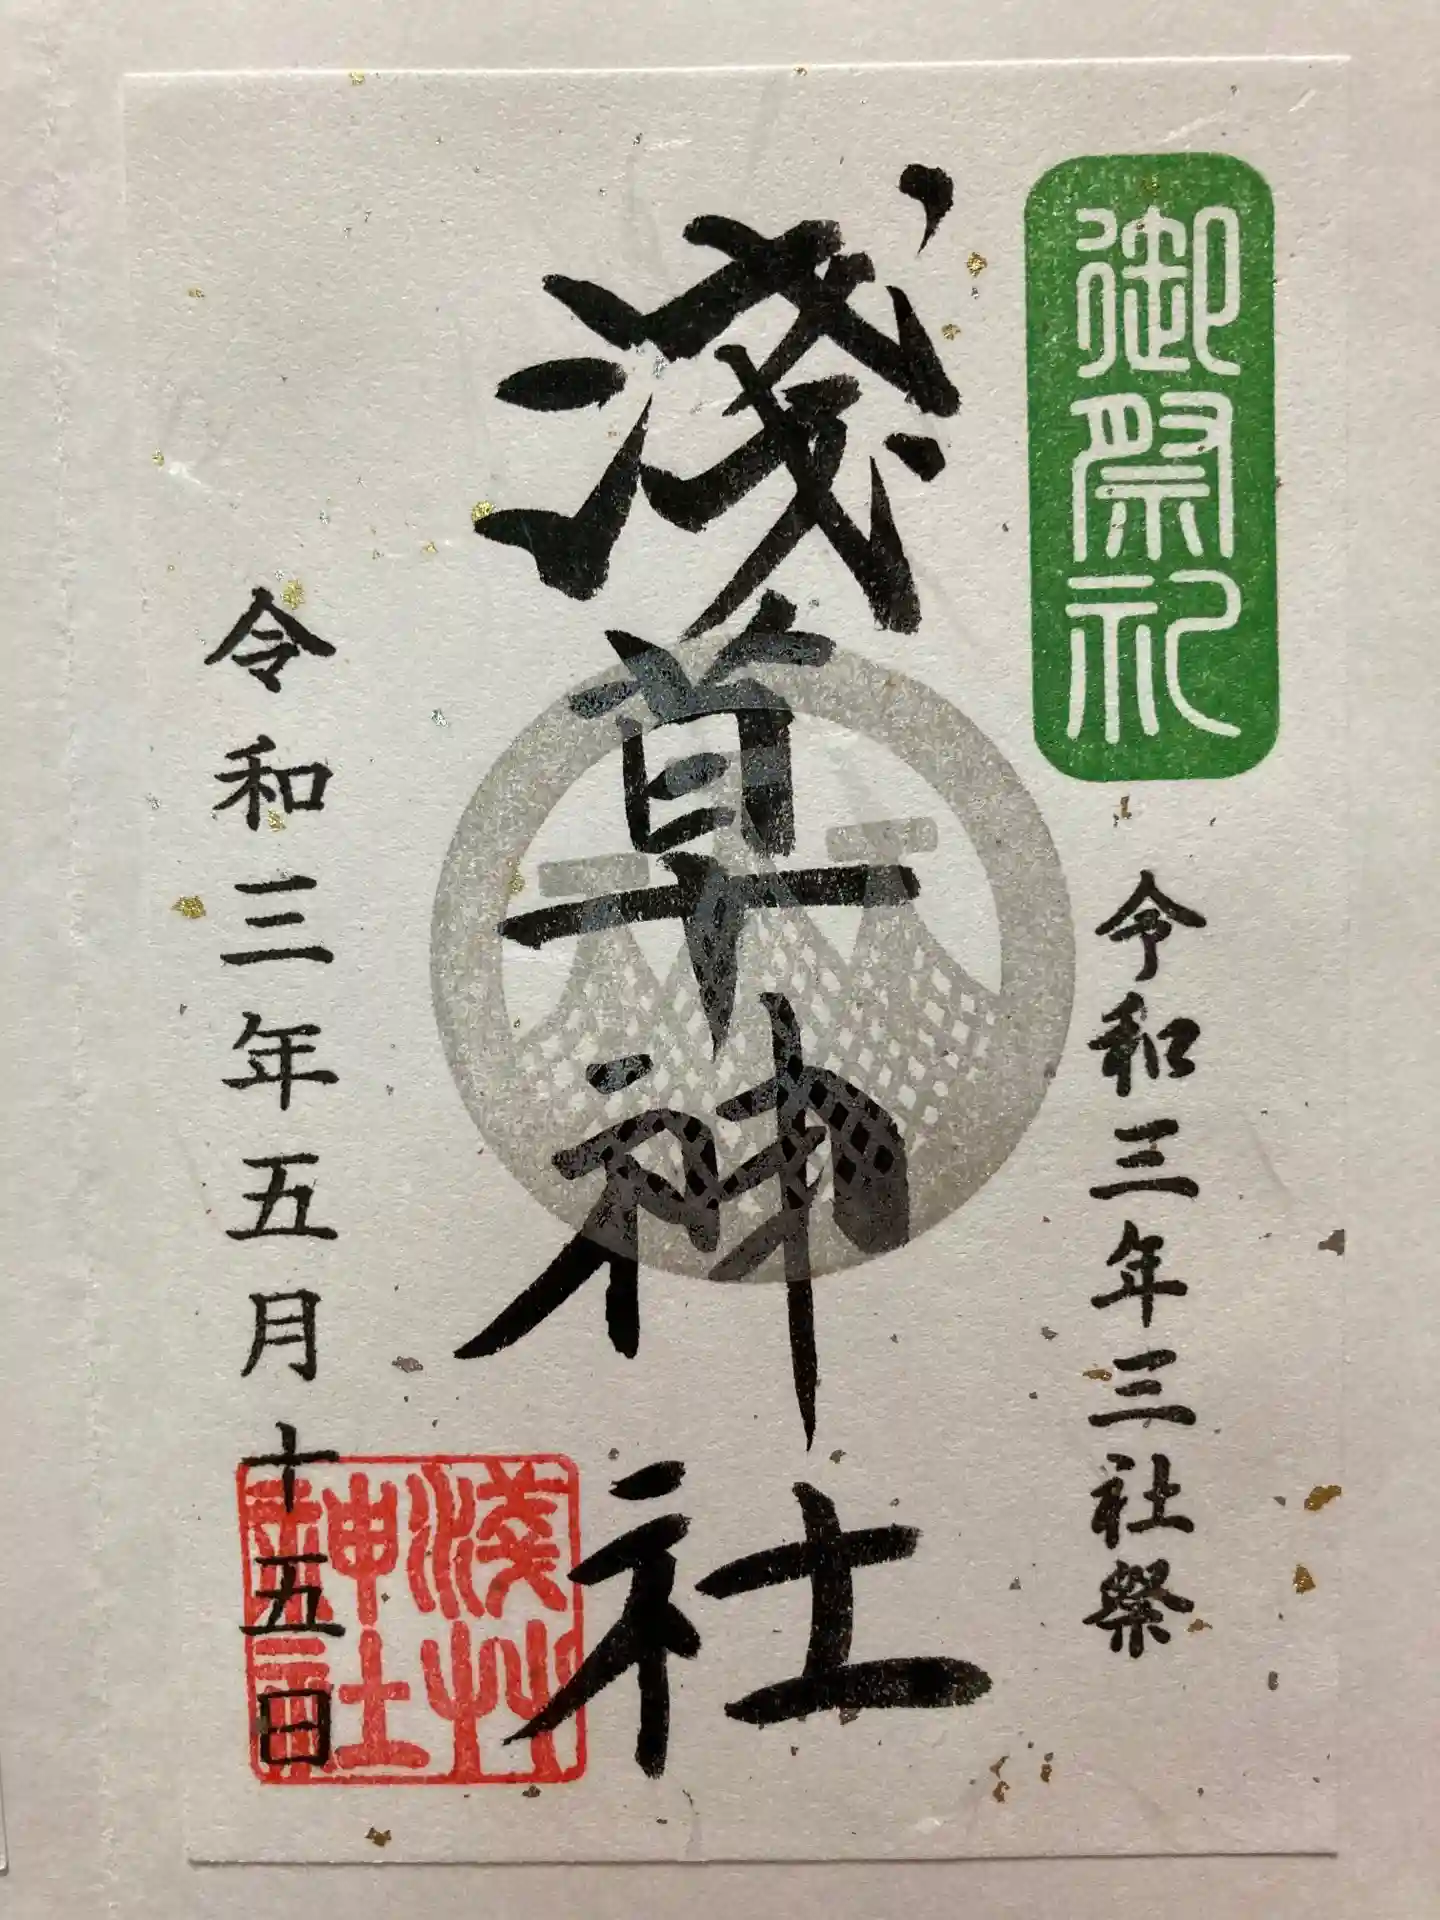 御祭礼
令和三年三社祭
淺草神社
令和三年五月十五日
淺艸
神社